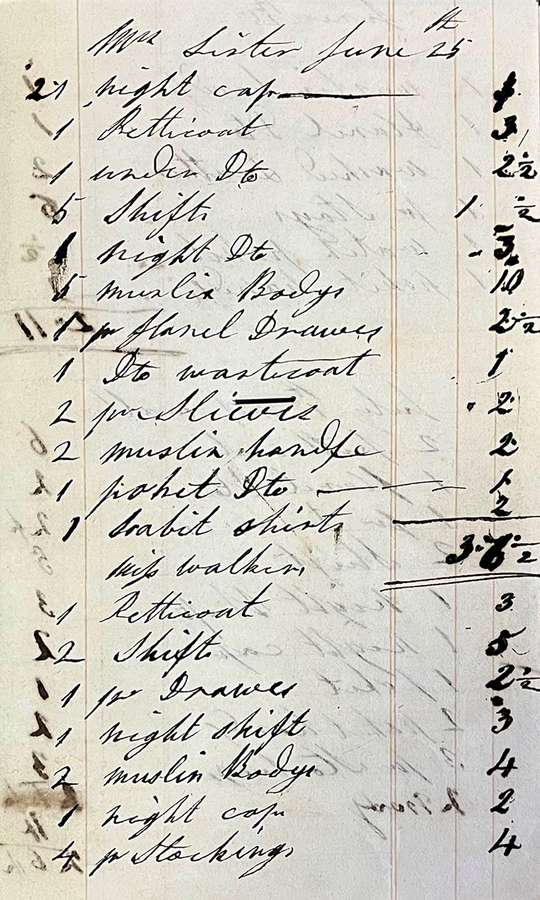 Mrs Sister June 25th
21 night cap 4
1 Petticoat 3
1 under Do 2 1/2
5 Shifts 1 1/2
1 night Do 3
5 muslin Bodys 10
1 pr flanel Drawes 2 1/2
1 Do wasticoat 1
2 pr Slieves 2
2 muslin handfe 2
1 poket Do 1
1 habit shirt 2
3 " 6 1/2
miss walker
1 Petticoat 3
2 Shifts 5
1 pr Drawes 2 1/2
1 night shift 3
2 muslin Bodys 4
1 night cap 2
4 pr Stockings 4